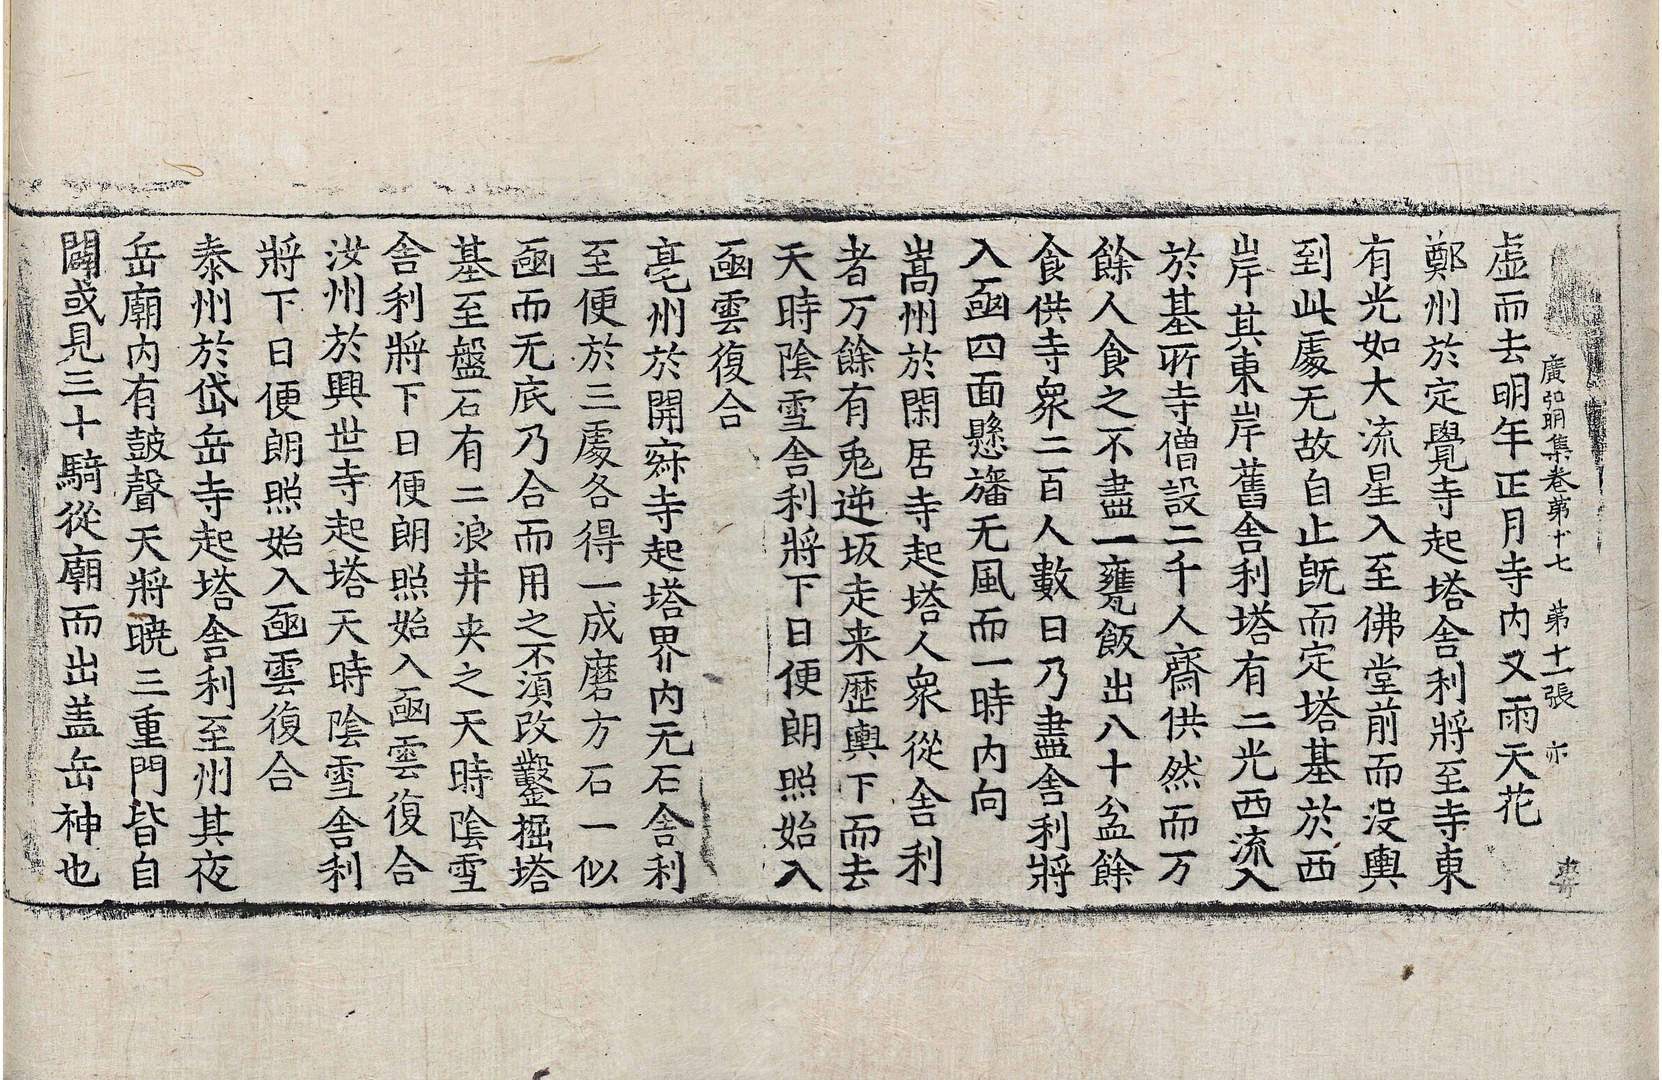 廣弘明集卷第十七　第十一張　亦
虛而去明年正月寺內又雨天花
鄭州於定覺寺起塔舍利將至寺東
有光如大流星入至佛堂前而沒輿
到此處无故自止旣而定塔基於西
岸其東岸舊舍利塔有二光西流入
於基所寺僧設二千人齋供然而万
餘人食之不盡一甕飯出八十盆餘
食供寺衆二百人數日乃盡舍利將
入凾四面懸旛无風而一時內向
嵩州於閑居寺起塔人衆從舍利
者万餘有兎逆坂走来歷輿下而去
天時陰雪舍利將下日便朗照始入
凾雲復合
亳州於開寂寺起塔界內无石舍利
至便於三處各得一成磨方石一似
凾而无底乃合而用之不湏改鑿掘塔
基至盤石有二浪井夾之天時陰雪
舍利將下日便朗照始入凾雲復合
汝州於興世寺起塔天時陰雪舍利
將下日便朗照始入凾雲復合
泰州於岱岳寺起塔舍利至州其夜
岳廟內有鼓聲天將曉三重門皆自
闢或見三十騎從廟而出盖岳神也